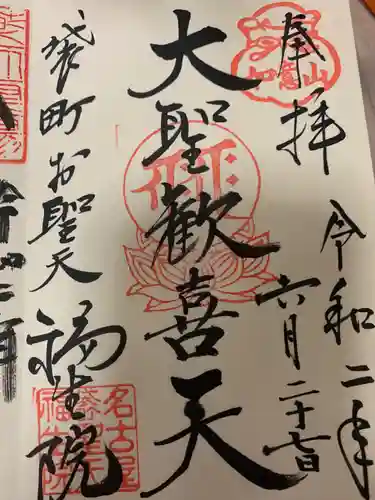 奉拝
令和二年
六月二十七日
如意山
大聖歓喜天
袋町お聖天
福生院
名古屋
袋聖天
福生院